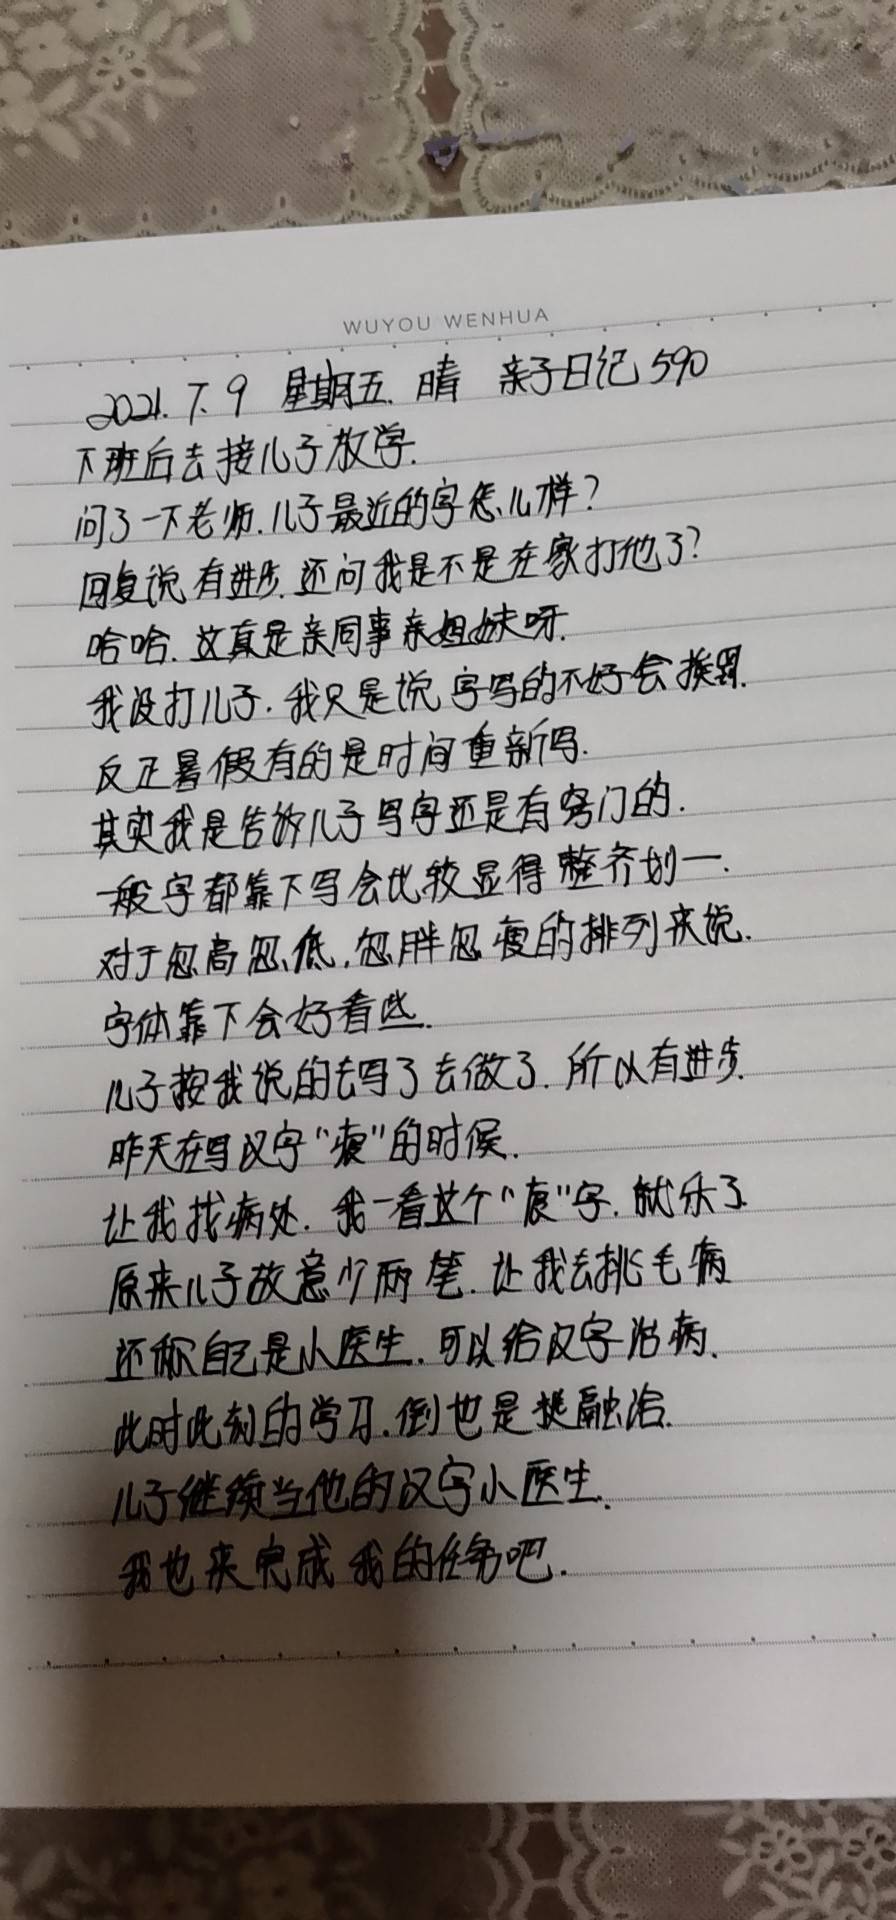 WUYOU WENHUA
2021.7.9 星期五. 晴 亲子日记590
下班后去接儿子放学.
问了一下老师.儿子最近的字怎么样?
回复说有进步.还问我是不是在家打他了?
哈哈.这真是亲同事亲姐妹呀.
我没打儿子.我只是说字写的不好会挨罚.
反正暑假有的是时间重新写.
其实我是告诉儿子写字还是有窍门的.
一般字都靠下写会比较显得整齐划一.
对于忽高忽低,忽胖忽瘦的排列来说.
字体靠下会好看些.
儿子按我说的去写了去做了.所以有进步.
昨天在写汉字“痕”的时候.
让我找病处.我一看这个“痕”字.就乐了.
原来儿子故意少两笔.让我去挑毛病
还称自己是小医生.可以给汉字治病.
此时此刻的学习.倒也是挺融洽.
儿子继续当他的汉字小医生.
我也来完成我的任务吧.